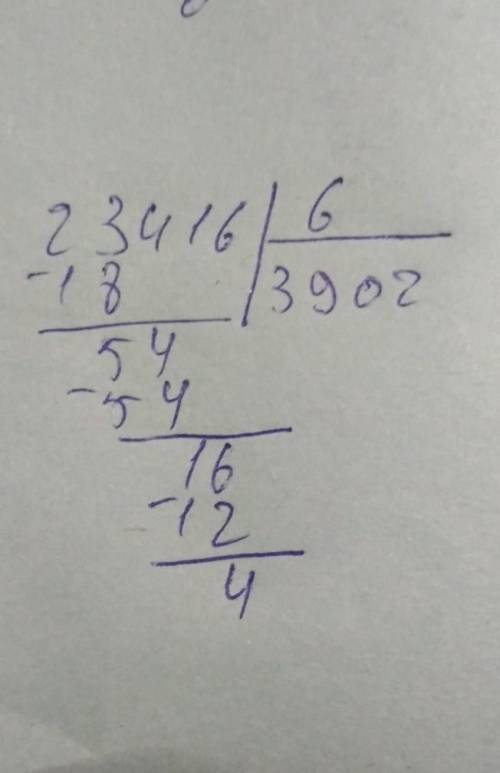 23416 | 6
-18 | 3902
54
-54
16
-12
4